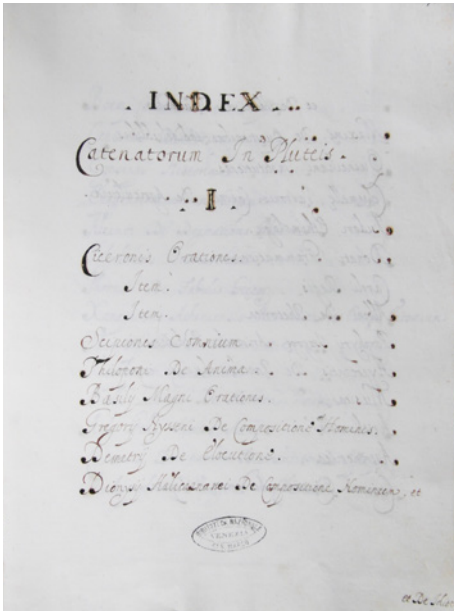 INDEX
Catenatorum In Pluteis.
I
Ciceronis Orationes.
Item.
Item.
Scipionis Somnium
Philoponi De Anima
Basilij Magni Orationes.
Gregorij Nysseni De Compositione Hominis.
Demetrij De Elocutione.
Dionysij De et
VENEZIA
et De